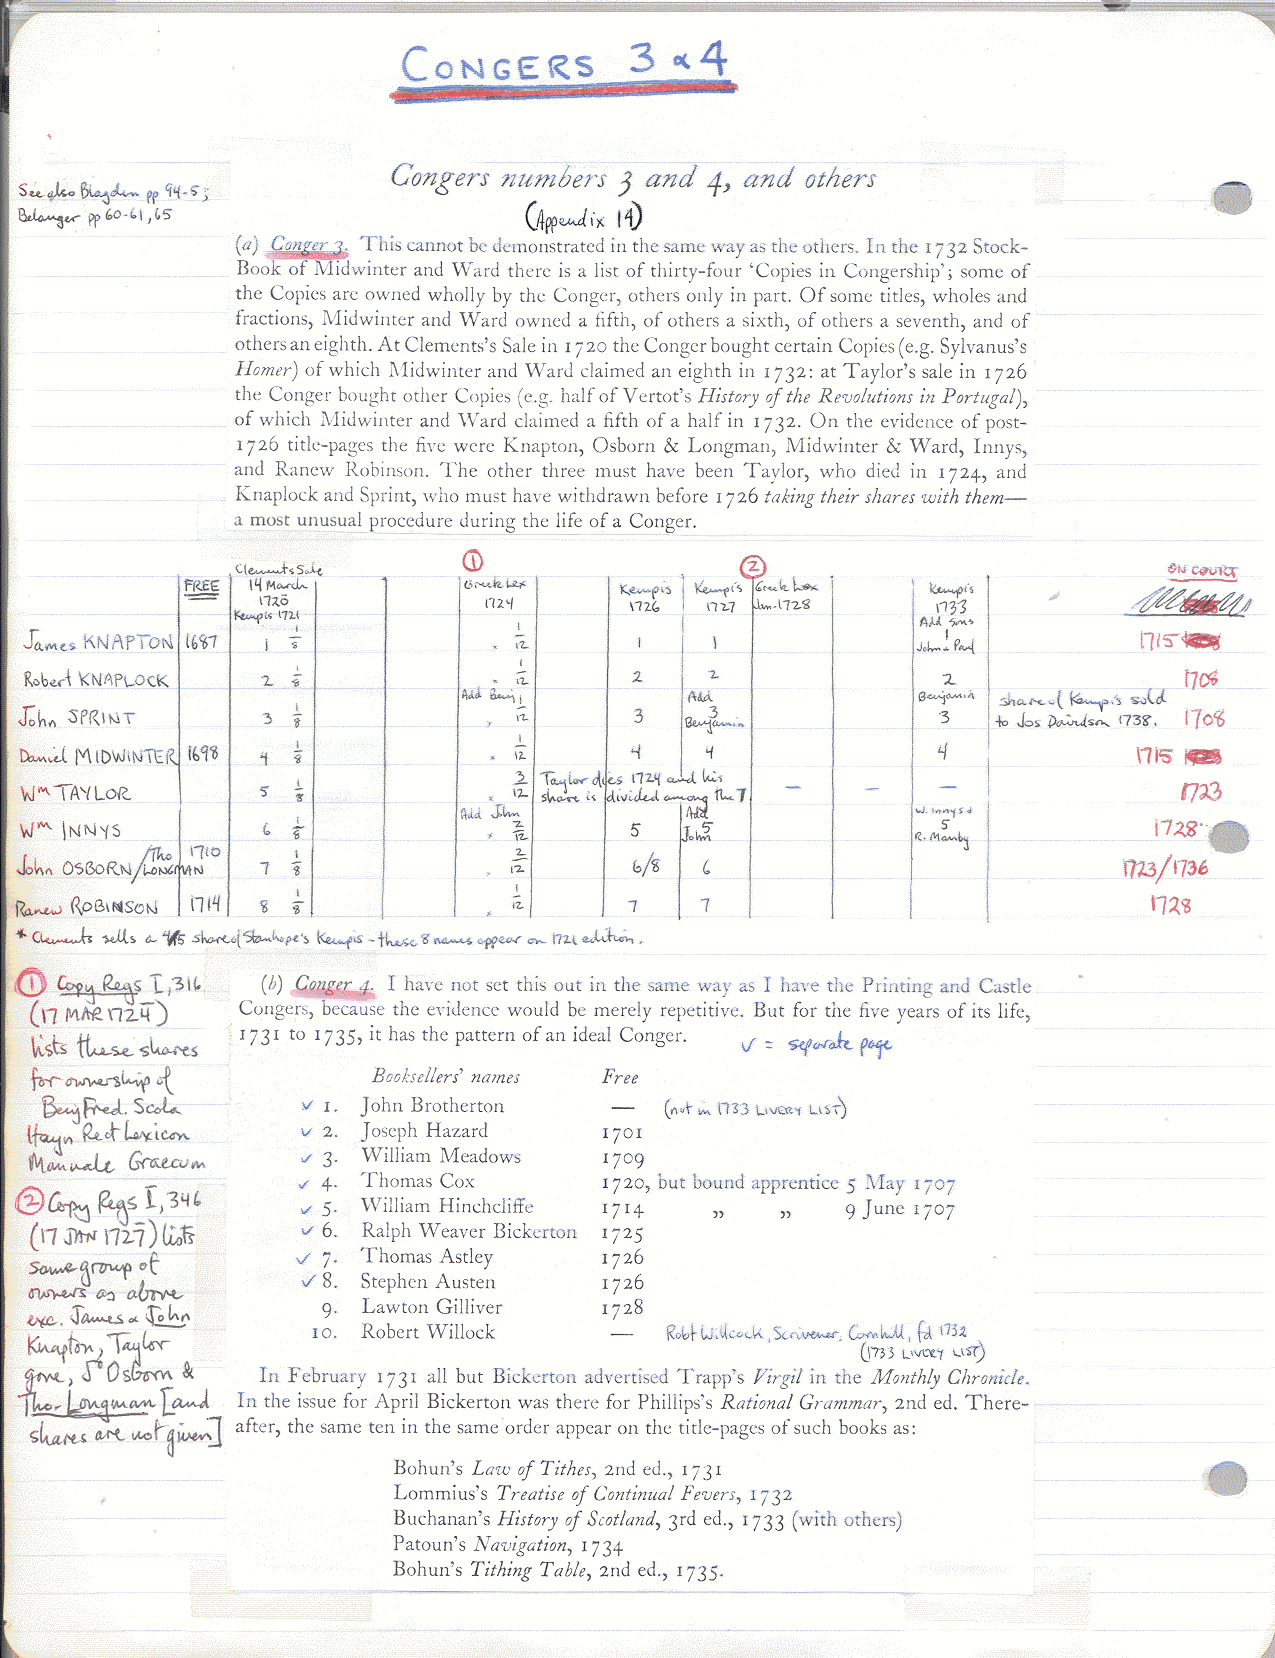 CONGERS 3 & 4
See also Blagden pp 94-5;
Belanger pp 60-61, 65
Congers numbers 3 and 4, and others
(Appendix 14)
(a) Conger 3. This cannot be demonstrated in the same way as the others. In the 1732 Stock-
Book of Midwinter and Ward there is a list of thirty-four ‘Copies in Congership’; some of
the Copies are owned wholly by the Conger, others only in part. Of some titles, wholes and
fractions, Midwinter and Ward owned a fifth, of others a sixth, of others a seventh, and of
others an eighth. At Clements's Sale in 1720 the Conger bought certain Copies (e.g. Sylvanus's
Homer) of which Midwinter and Ward claimed an eighth in 1732: at Taylor's sale in 1726
the Conger bought other Copies (e.g. half of Vertot's History of the Revolutions in Portugal),
of which Midwinter and Ward claimed a fifth of a half in 1732. On the evidence of post-
1726 title-pages the five were Knapton, Osborn & Longman, Midwinter & Ward, Innys,
and Ranew Robinson. The other three must have been Taylor, who died in 1724, and
Knaplock and Sprint, who must have withdrawn before 1726 taking their shares with them—
a most unusual procedure during the life of a Conger.
① ②
FREE Clements Sale 14 March 1720 Kempis 1721 Greek Lex 1724 Kempis 1726 Kempis 1727 Greek Lex Jan-1728 Kempis 1733 ON COURT
James KNAPTON 1687 1 1/8 x 1/12 1 1 Add sons 1 John & Paul 1715
Robert KNAPLOCK 2 1/8 x 1/12 2 2 2 1708
John SPRINT 3 1/8 Add Benj x 1/12 3 Add 3 Benjamin Benjamin 3 share of Kempis sold to Jos Davidson 1738. 1708
Daniel MIDWINTER 1698 4 1/8 x 1/12 4 4 4 1715
Wm TAYLOR 5 1/8 x 3/12 Taylor dies 1724 and his share is divided among the 7 — — — 1723
Wm INNYS 6 1/8 Add John x 2/12 5 Add 5 John W. Innys & 5 R. Manby 1728
John OSBORN/Tho LONGMAN 1710 7 1/8 x 2/12 6/8 6 1723/1736
Ranew ROBINSON 1714 8 1/8 x 1/12 7 7 1728
* Clements sells a 4/5 share of Stanhope's Kempis – these 8 names appear on 1721 edition.
① Copy Regs I, 316
(17 MAR 1724)
lists these shares
for ownership of
Benj Fred. Scota
Hayn Rect Lexicon
Manuale Graecum
② Copy Regs I, 346
(17 JAN 1727) lists
same group of
owners as above
exc. James & John
Knapton, Taylor
gone, Jo Osborn &
Tho. Longman [and
shares are not given]
(b) Conger 4. I have not set this out in the same way as I have the Printing and Castle
Congers, because the evidence would be merely repetitive. But for the five years of its life,
1731 to 1735, it has the pattern of an ideal Conger.
✓ = separate page
Booksellers' names Free
✓ 1. John Brotherton — (not in 1733 LIVERY LIST)
✓ 2. Joseph Hazard 1701
✓ 3. William Meadows 1709
✓ 4. Thomas Cox 1720, but bound apprentice 5 May 1707
✓ 5. William Hinchcliffe 1714 „ „ 9 June 1707
✓ 6. Ralph Weaver Bickerton 1725
✓ 7. Thomas Astley 1726
✓ 8. Stephen Austen 1726
9. Lawton Gilliver 1728
10. Robert Willock — Robt Willcock, Scrivener, Cornhill, fd 1732
(1733 LIVERY LIST)
In February 1731 all but Bickerton advertised Trapp's Virgil in the Monthly Chronicle.
In the issue for April Bickerton was there for Phillips's Rational Grammar, 2nd ed. There-
after, the same ten in the same order appear on the title-pages of such books as:
Bohun's Law of Tithes, 2nd ed., 1731
Lommius's Treatise of Continual Fevers, 1732
Buchanan's History of Scotland, 3rd ed., 1733 (with others)
Patoun's Navigation, 1734
Bohun's Tithing Table, 2nd ed., 1735.